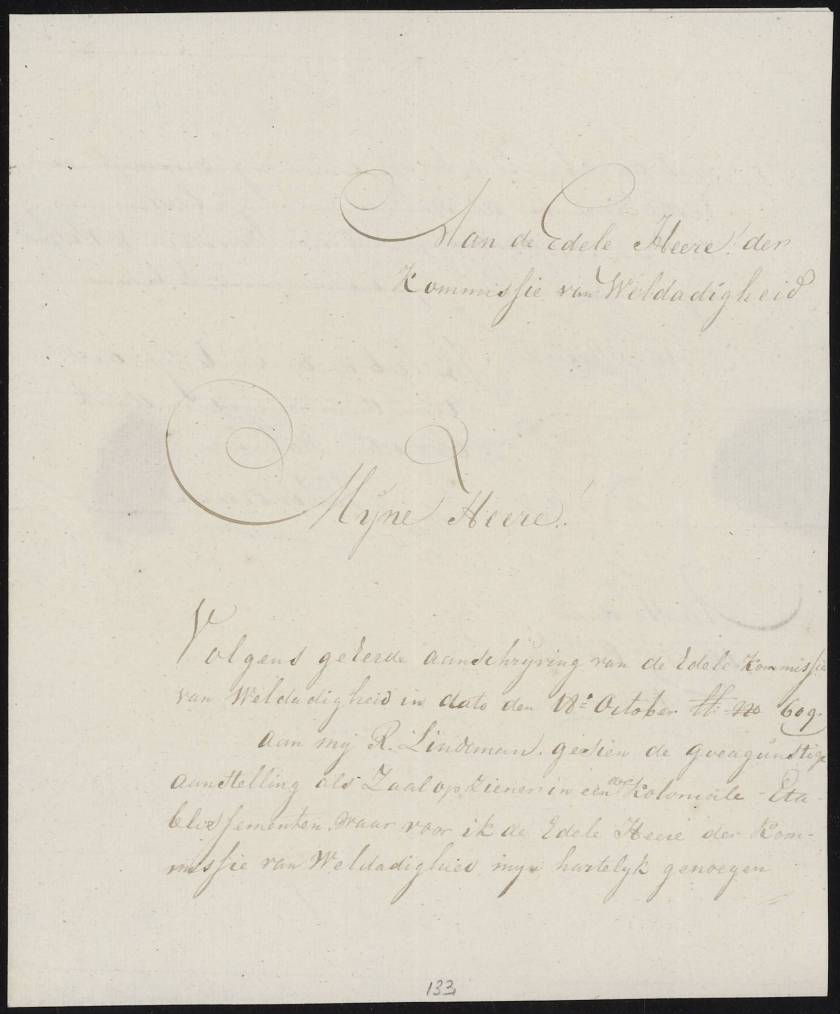 Aan de Edele Heere! der
Kommissie van Weldadigheid
Myne Heere!
Volgens geEerde aanschryving van de Edele Kommissie
van Weldadigheid in dato den 18e October ll. no 609.
aan my R. Lindeman. gesien de goeagunstige
aanstelling als Zaalopziener in een der Koloniale - Eta-
blissementen. waar voor ik de Edele Heere der Kom-
missie van Weldadigheid myn hartelyk genoegen
133